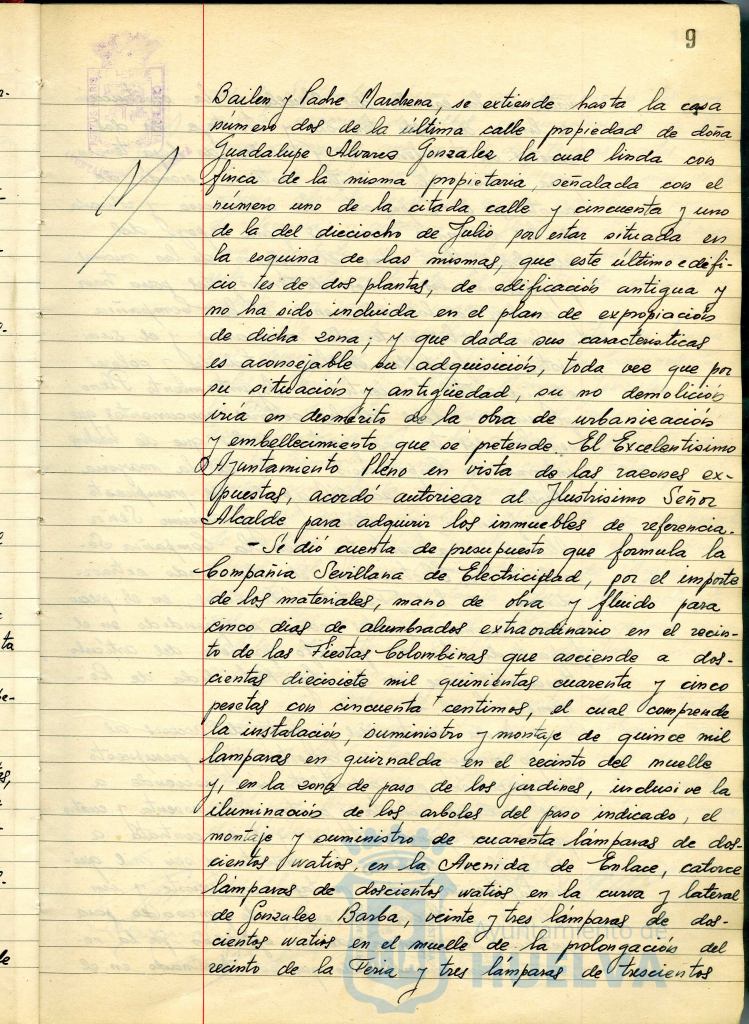 9
Bailen y Padre Marchena, se extiende hasta la casa
número dos de la última calle propiedad de doña
Guadalupe Alvarez Gonzalez la cual linda con
finca de la misma propietaria, señalada con el
número uno de la citada calle y cincuenta y uno
de la del dieciocho de Julio por estar situada en
la esquina de las mismas, que este último edifi-
cio es de dos plantas, de edificación antigua y
no ha sido incluida en el plan de expropiación
de dicha zona; y que dada sus caracteristicas
es aconsejable su adquisición, toda vez que por
su situación y antigüedad, su no demolición
iria en desmérito de la obra de urbanización
y embellecimiento que se pretende. El Excelentisimo
Ayuntamiento Pleno en vista de las razones ex-
puestas, acordó autorizar al Ilustrisimo Señor
Alcalde para adquirir los inmuebles de referencia.
- Se dió cuenta de presupuesto que formula la
Compañia Sevillana de Electricidad, por el importe
de los materiales, mano de obra y fluido para
cinco dias de alumbrados extraordinario en el recin-
to de las Fiestas Colombinas que asciende a dos-
cientas diecisiete mil quinientas cuarenta y cinco
pesetas con cincuenta centimos, el cual comprende
la instalación, suministro y montaje de quince mil
lamparas en guirnalda en el recinto del muelle
y, en la zona de paso de los jardines, inclusive la
iluminación de los arboles del paso indicado, el
montaje y suministro de cuarenta lámparas de dos-
cientos watios, en la Avenida de Enlace, catorce
lámparas de doscientos watios en la curva y lateral
de Gonzalez Barba, veinte y tres lámparas de dos-
cientos watios en el muelle de la prolongación del
recinto de la Feria y tres lámparas de trescientos
Ayuntamiento de
HUELVA